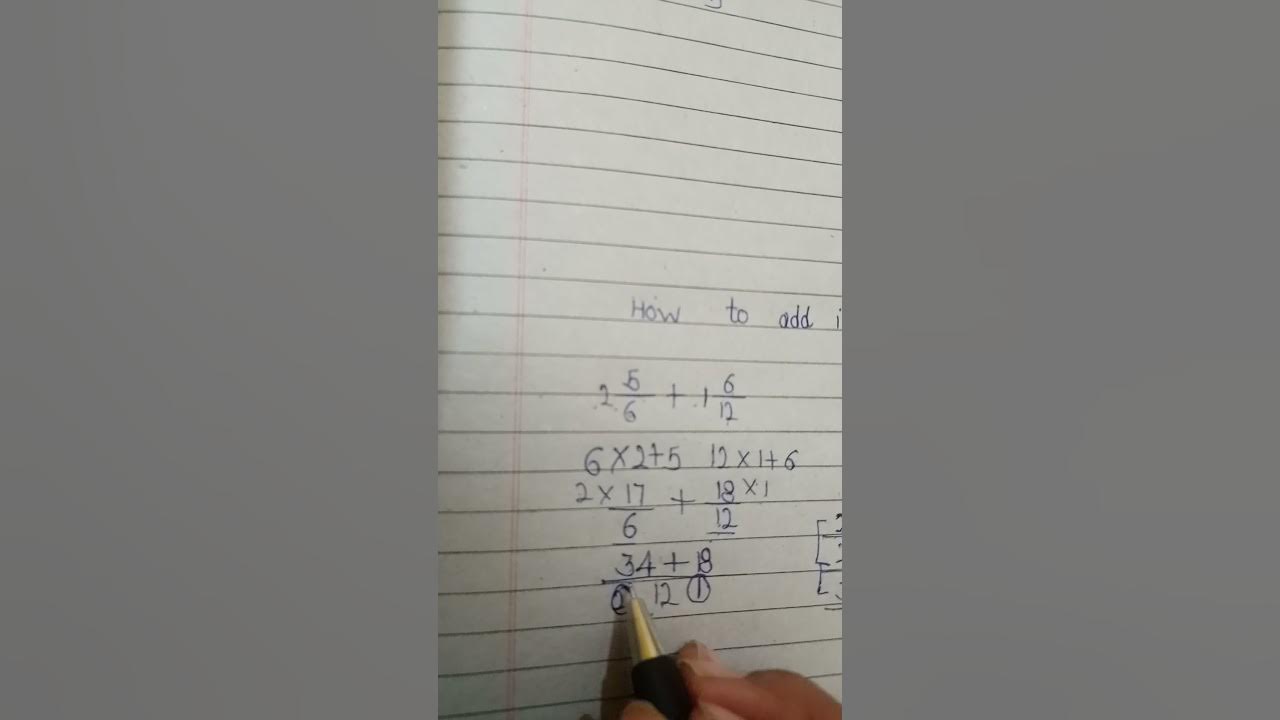 How to add
2 5/6 + 1 6/12
6×2+5 12×1+6
2×17/6 + 18×1/12
34+18
2 12 1